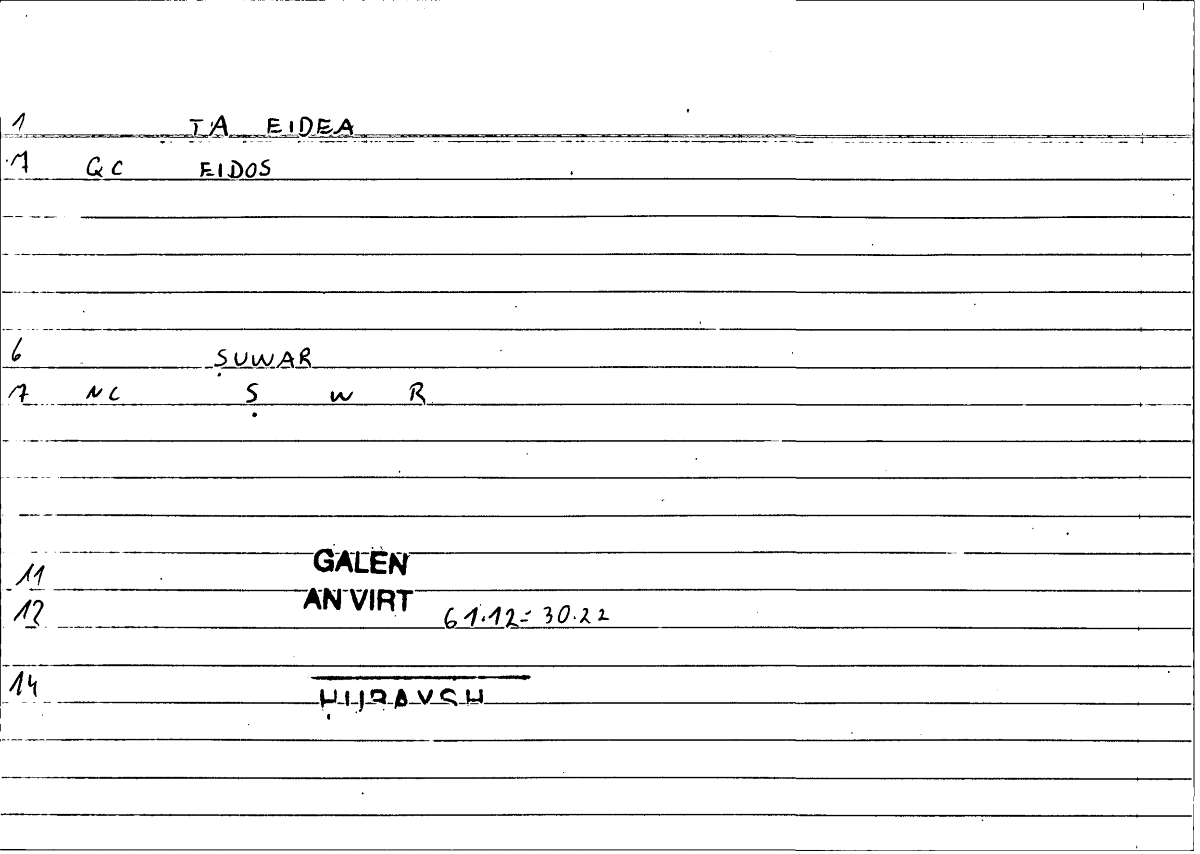 1 TA EIDEA
1 QC EIDOS
6 ṢUWAR
7 NC Ṣ W R
11 GALEN
12 AN VIRT 61.12 = 30.22
14 ḤUBAYSH